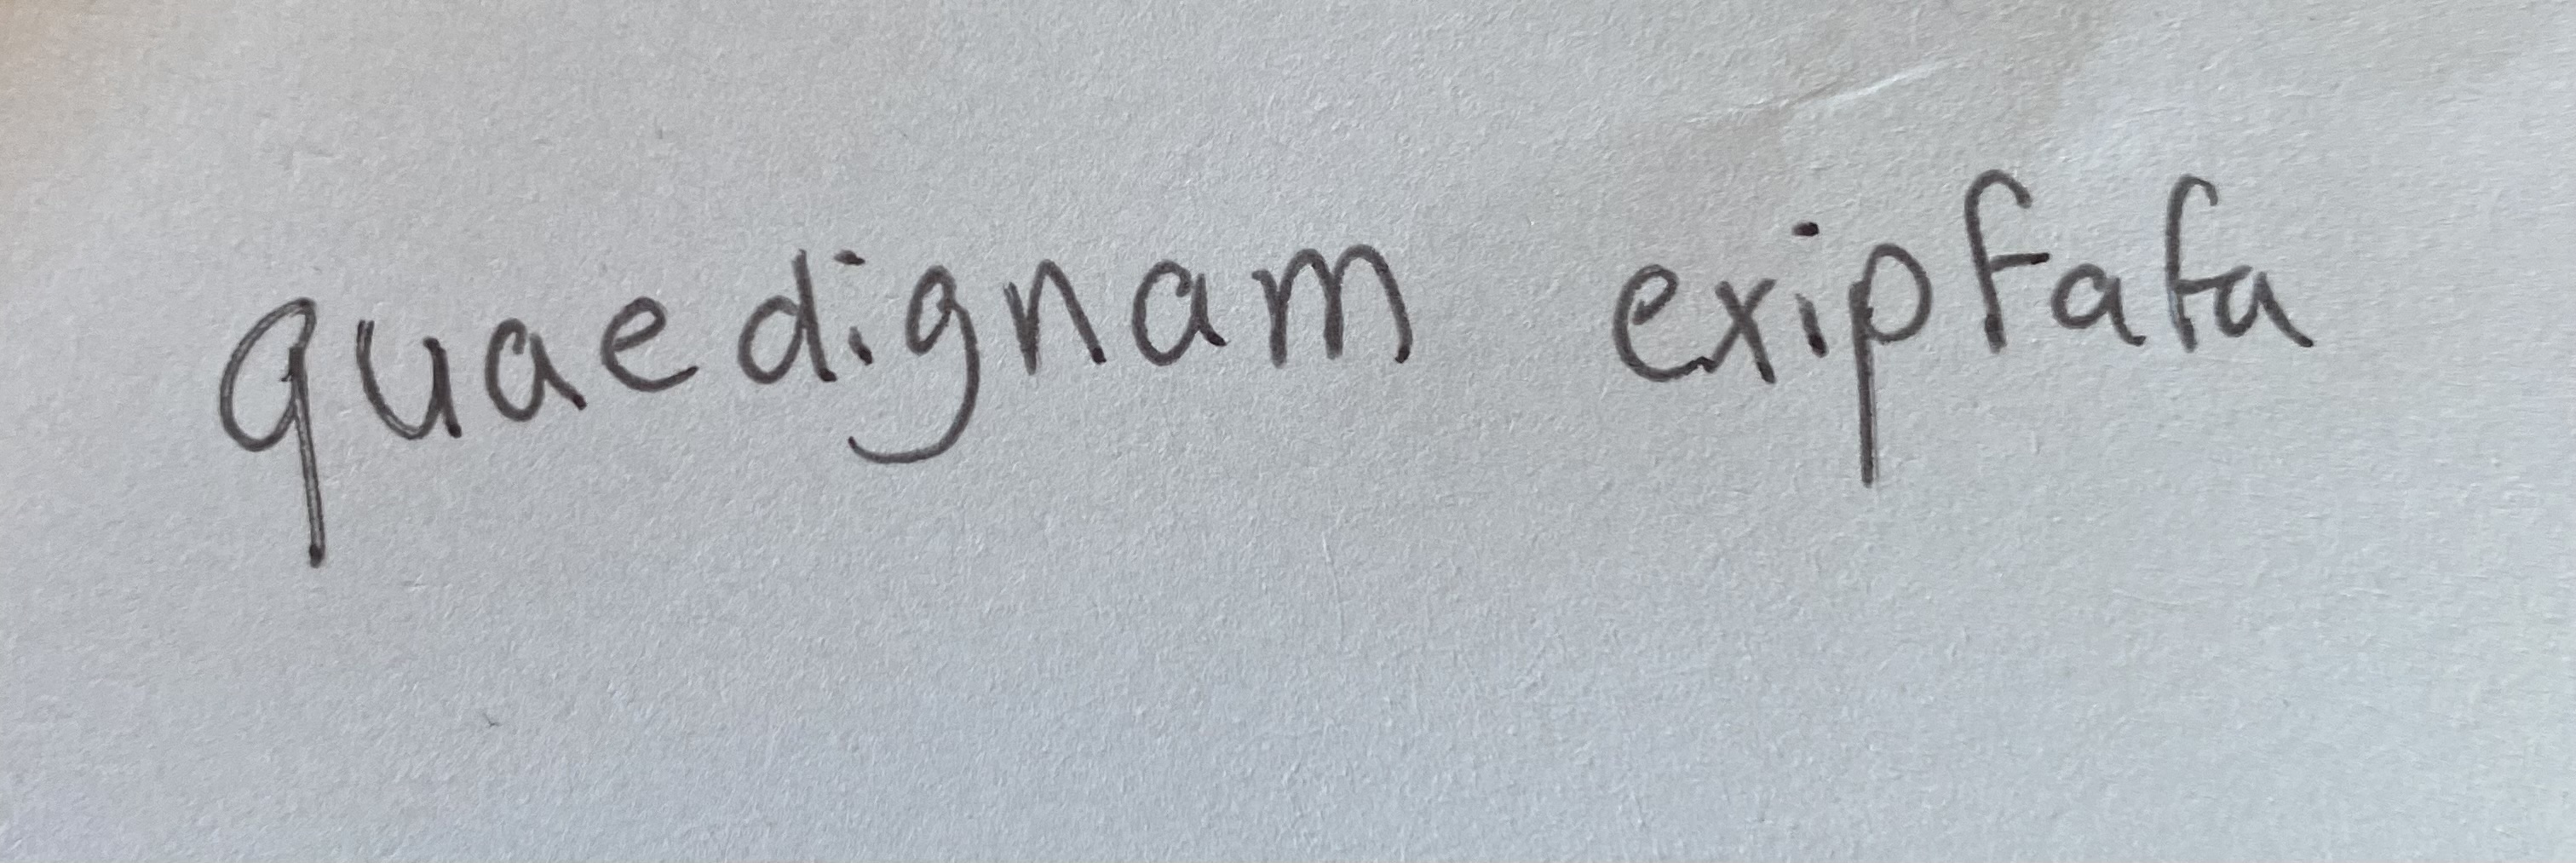 quaedignam exipfafa